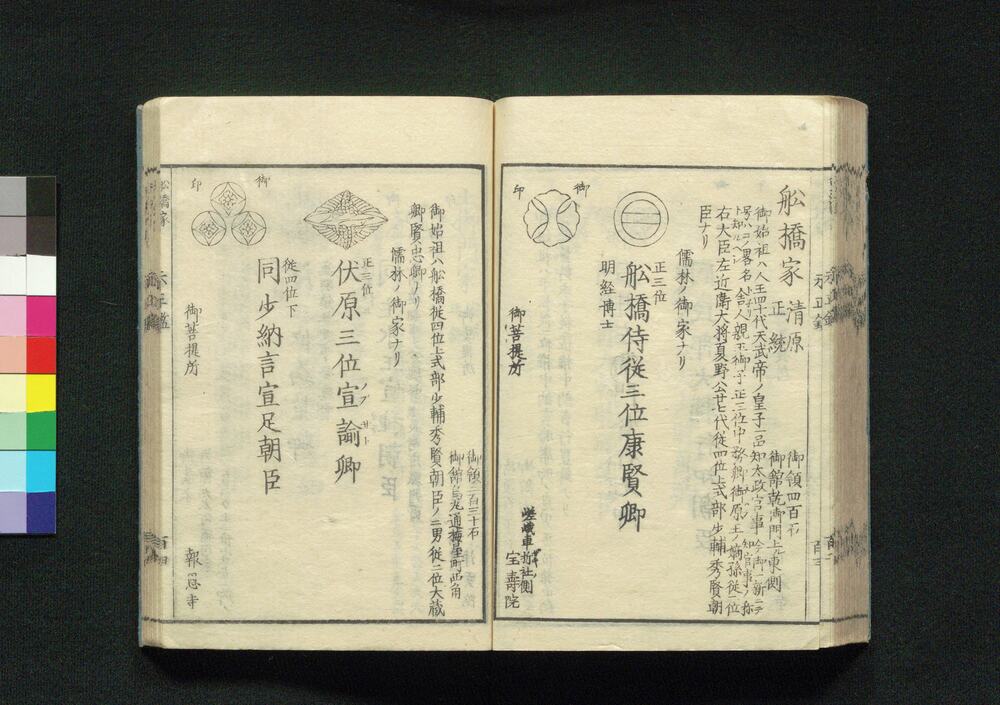 舩橋家 清原
正統
御領四百石
御館乾御門上東側
御始祖ハ人王四十代天武帝ノ皇子一品知太政官事
舎人親王御子正三位中務卿御原王ノ嫡孫従一位
右大臣左近衛大将夏野公廿七代従四位上式部少輔秀賢朝
臣ナリ
儒林ノ御家ナリ
正三位
舩橋侍従三位康賢卿
明経博士
御
印
御菩提所
嵯峨車折社側
宝壽院
御領二百三十石
御館烏丸通椹木町西角
御始祖ハ舩橋従四位上式部少輔秀賢朝臣ノ二男従二位大蔵
卿賢忠卿ナリ
儒林ノ御家ナリ
正三位
伏原三位宣諭卿
ノブ サト
従四位下
同少納言宣足朝臣
御
印
御菩提所
報恩寺
舩橋家